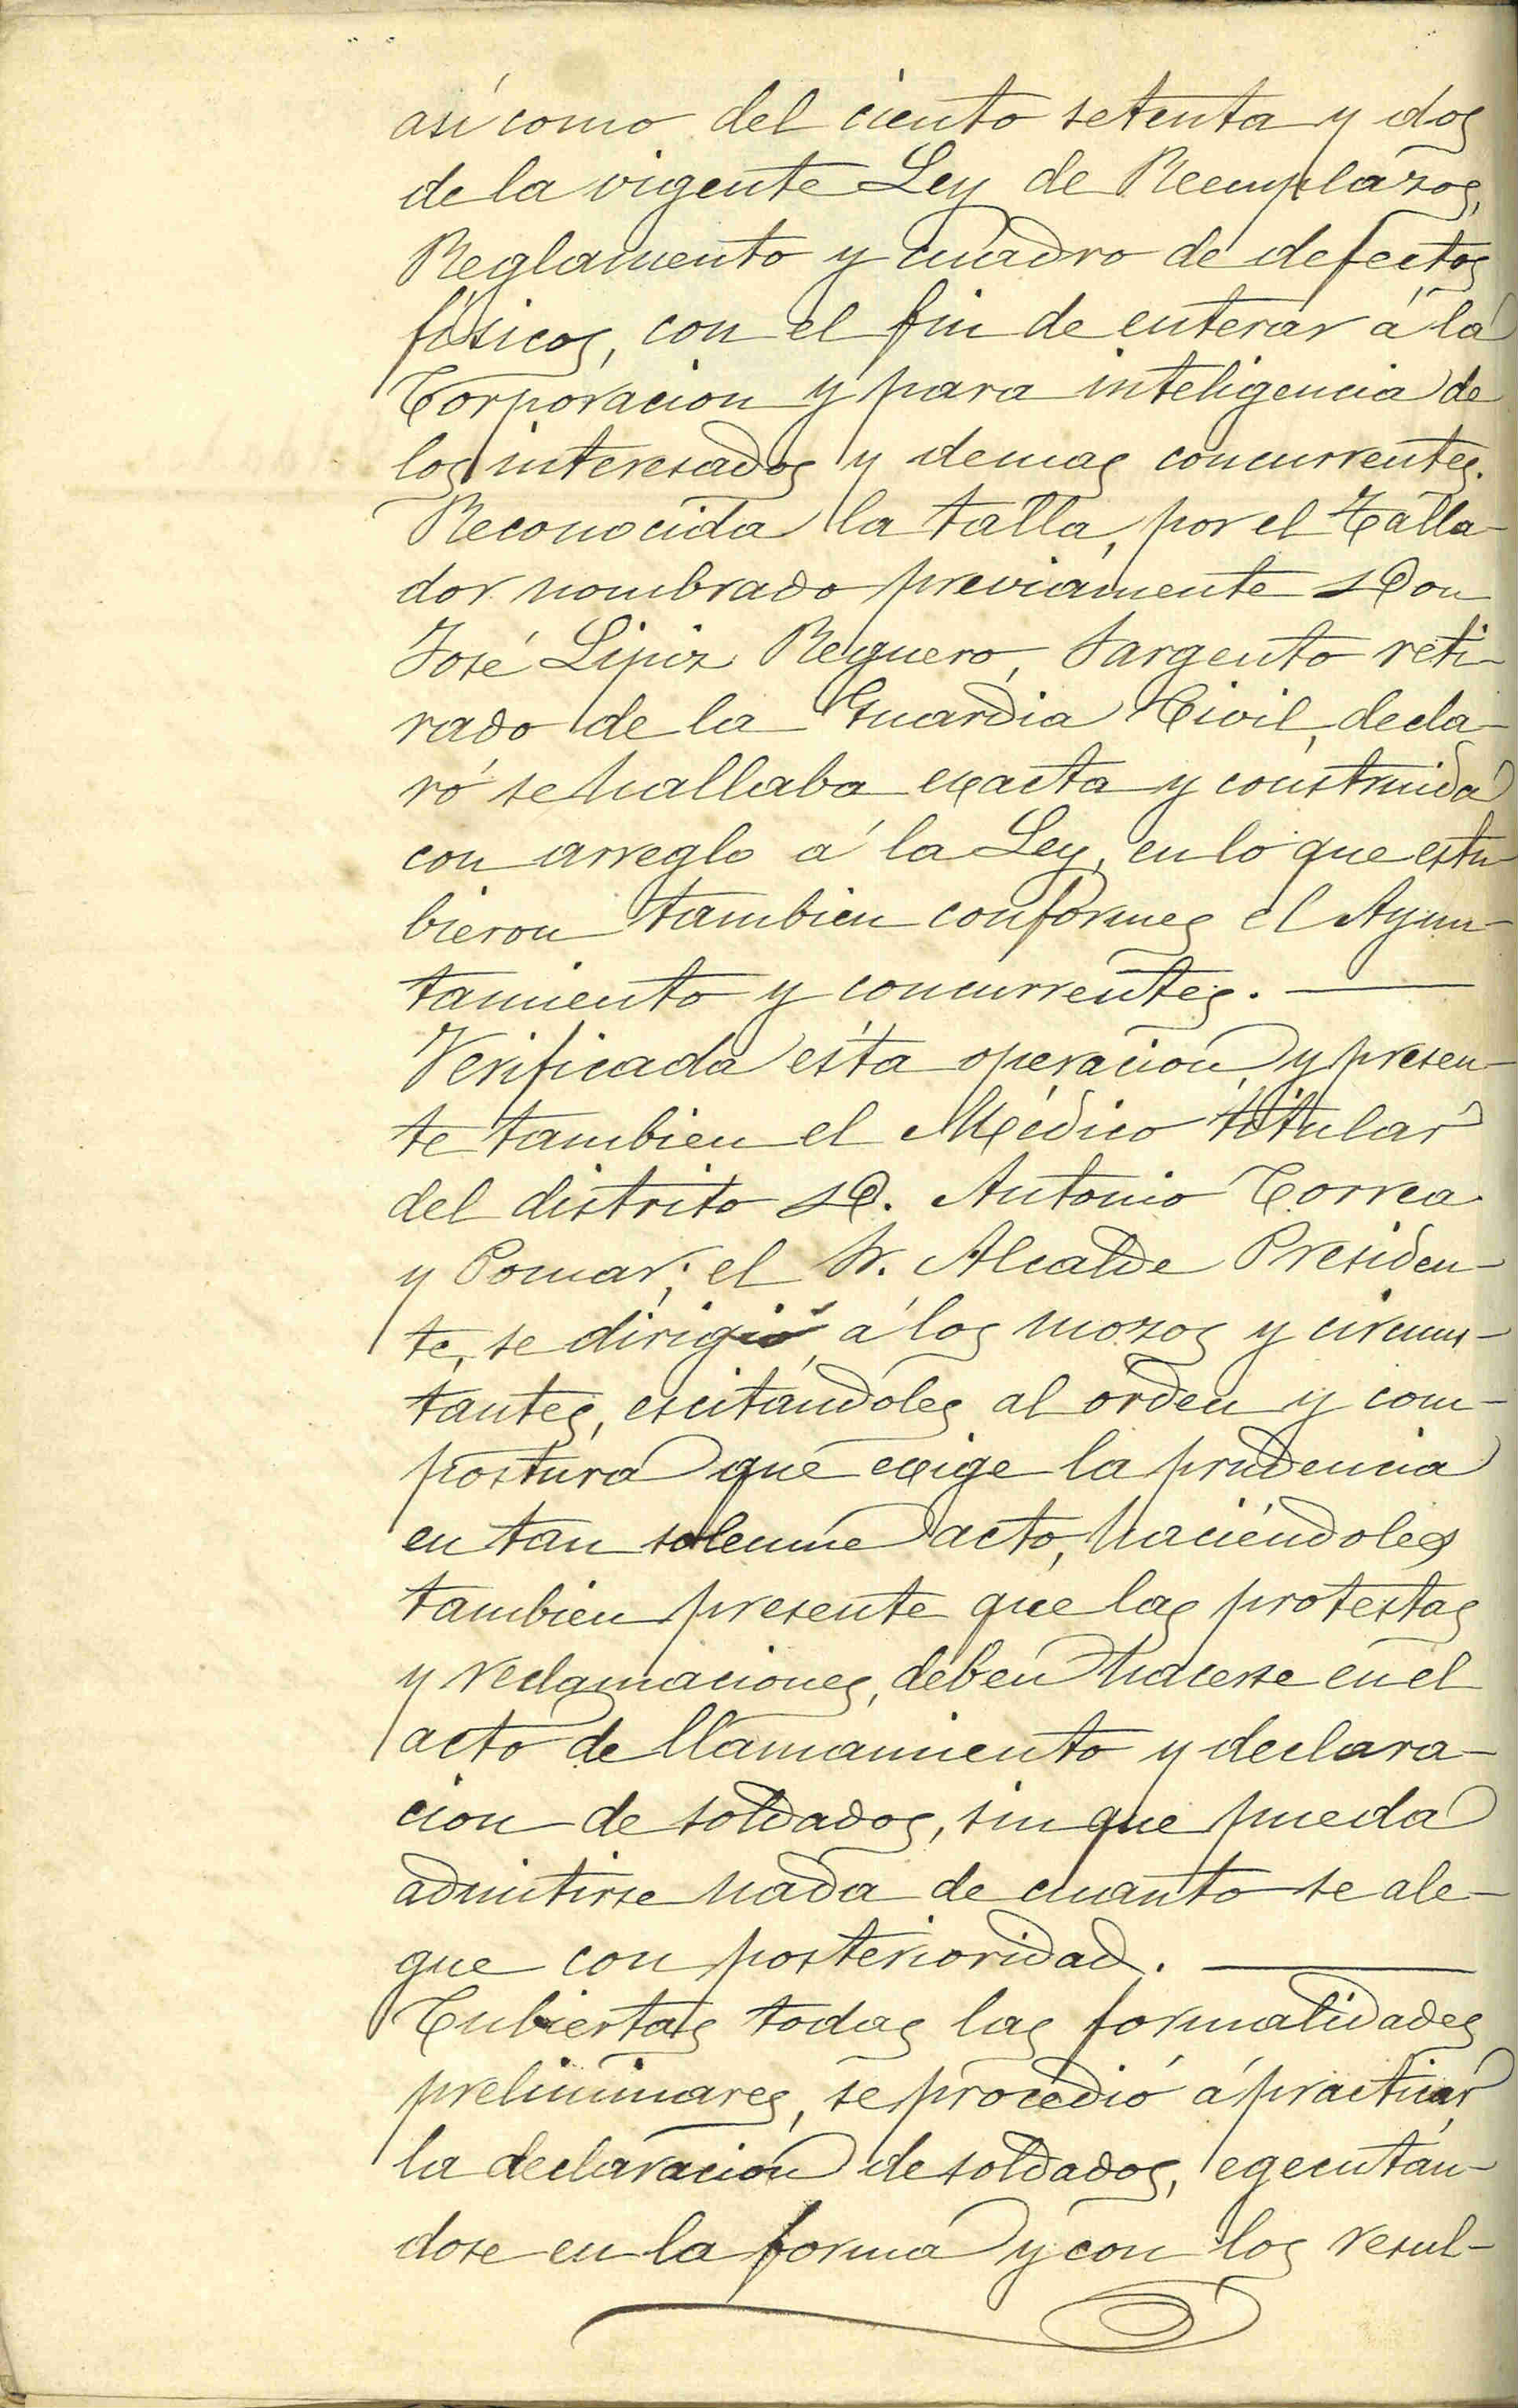 así como del ciento setenta y dos
de la vigente Ley de Reemplazos,
Reglamento y cuadro de defectos
físicos, con el fin de enterar á la
Corporacion y para inteligencia de
los interesados y demas concurrentes.
Reconocida la talla, por el Talla-
dor nombrado previamente Don
José Lipiz Reguero, Sargento reti-
rado de la Guardia Civil, decla-
ró se hallaba exacta y construida
con arreglo á la Ley, en lo que estu-
bieron tambien conformes el Ayun-
tamiento y concurrentes. —
Verificada esta operacion, y presen-
te tambien el Médico titular
del distrito D. Antonio Correa
y Pomar; el Sr. Alcalde Presiden-
te, se dirigió á los mozos y circuns-
tantes, escitándoles al orden y com-
postura que exige la prudencia
en tan solemne acto, haciéndoles
tambien presente que las protestas
y reclamaciones, deben hacerse en el
acto de llamamiento y declara-
cion de soldados, sin que pueda
admitirse nada de cuanto se ale-
gue con posterioridad. —
Cubiertas todas las formalidades
preliminares, se procedió á practicar
la declaracion de soldados, egecután-
dose en la forma y con los resul-